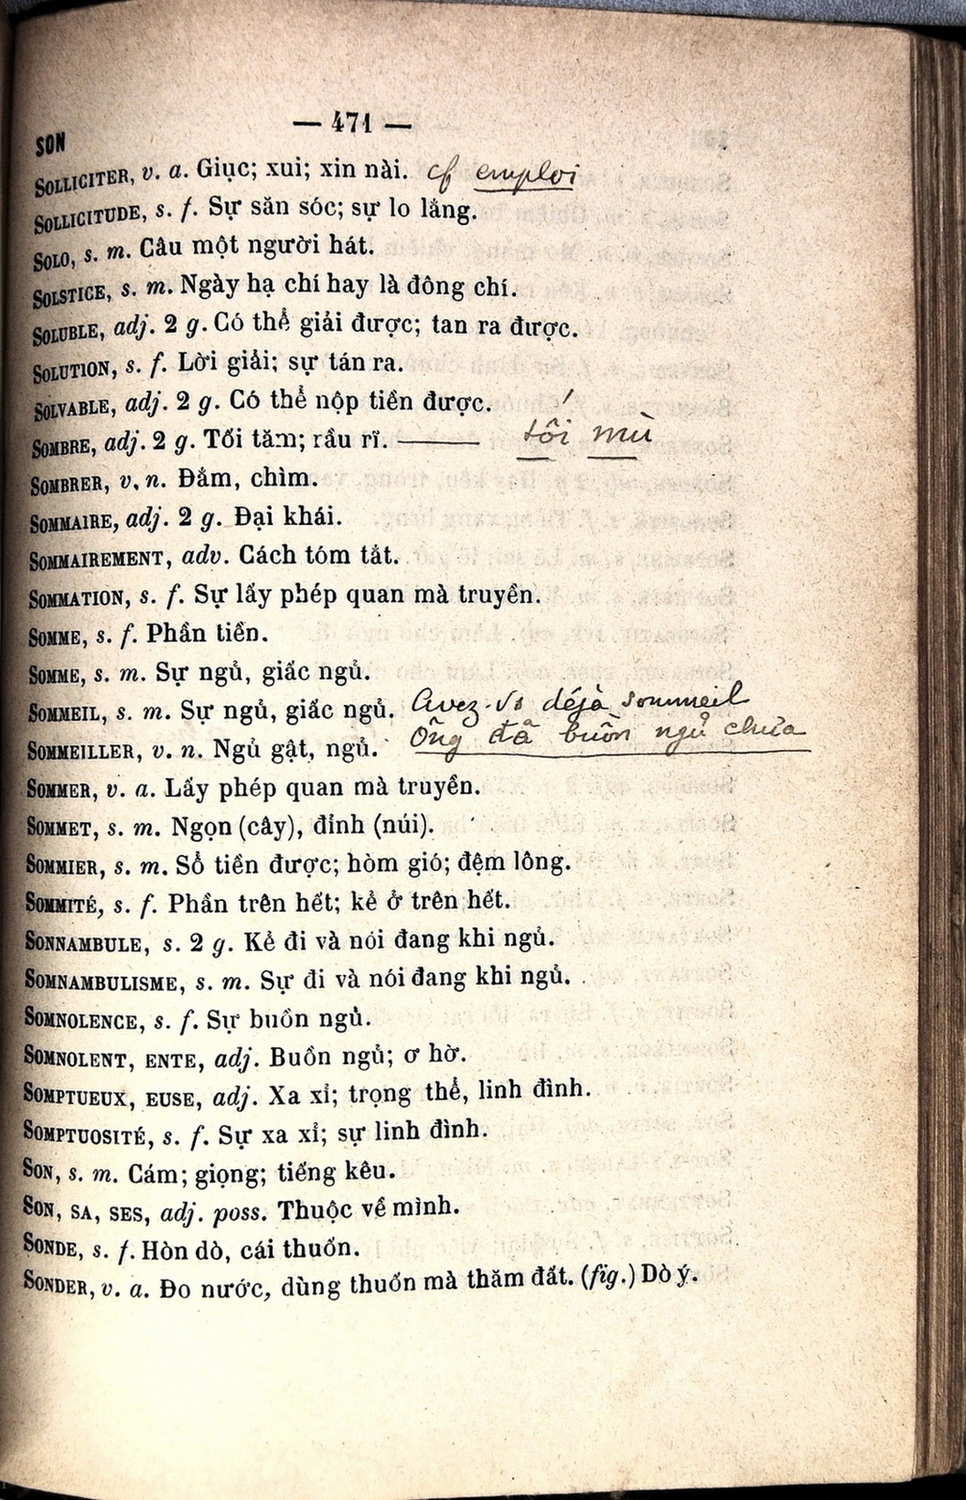 — 471 —
SON
SOLLICITER, v. a. Giục; xui; xin nài. cf emploi
SOLLICITUDE, s. f. Sự săn sóc; sự lo lắng.
SOLO, s. m. Câu một người hát.
SOLSTICE, s. m. Ngày hạ chí hay là đông chí.
SOLUBLE, adj. 2 g. Có thể giải được; tan ra được.
SOLUTION, s. f. Lời giải; sự tán ra.
SOLVABLE, adj. 2 g. Có thể nộp tiền được.
SOMBRE, adj. 2 g. Tối tăm; rầu rĩ. —— tối mù
SOMBRER, v. n. Đắm, chìm.
SOMMAIRE, adj. 2 g. Đại khái.
SOMMAIREMENT, adv. Cách tóm tắt.
SOMMATION, s. f. Sự lấy phép quan mà truyền.
SOMME, s. f. Phần tiền.
SOMME, s. m. Sự ngủ, giấc ngủ.
SOMMEIL, s. m. Sự ngủ, giấc ngủ. Avez-vs déjà sommeil
SOMMEILLER, v. n. Ngủ gật, ngủ. Ông đã buồn ngủ chưa
SOMMER, v. a. Lấy phép quan mà truyền.
SOMMET, s. m. Ngọn (cây), đỉnh (núi).
SOMMIER, s. m. Sổ tiền được; hòm gió; đệm lông.
SOMMITÉ, s. f. Phần trên hết; kẻ ở trên hết.
SONNAMBULE, s. 2 g. Kẻ đi và nói đang khi ngủ.
SOMNAMBULISME, s. m. Sự đi và nói đang khi ngủ.
SOMNOLENCE, s. f. Sự buồn ngủ.
SOMNOLENT, ENTE, adj. Buồn ngủ; ơ hờ.
SOMPTUEUX, EUSE, adj. Xa xỉ; trọng thể, linh đình.
SOMPTUOSITÉ, s. f. Sự xa xỉ; sự linh đình.
SON, s. m. Cám; giọng; tiếng kêu.
SON, SA, SES, adj. poss. Thuộc về mình.
SONDE, s. f. Hòn dò, cái thuổn.
SONDER, v. a. Đo nước, dùng thuổn mà thăm đất. (fig.) Dò ý.